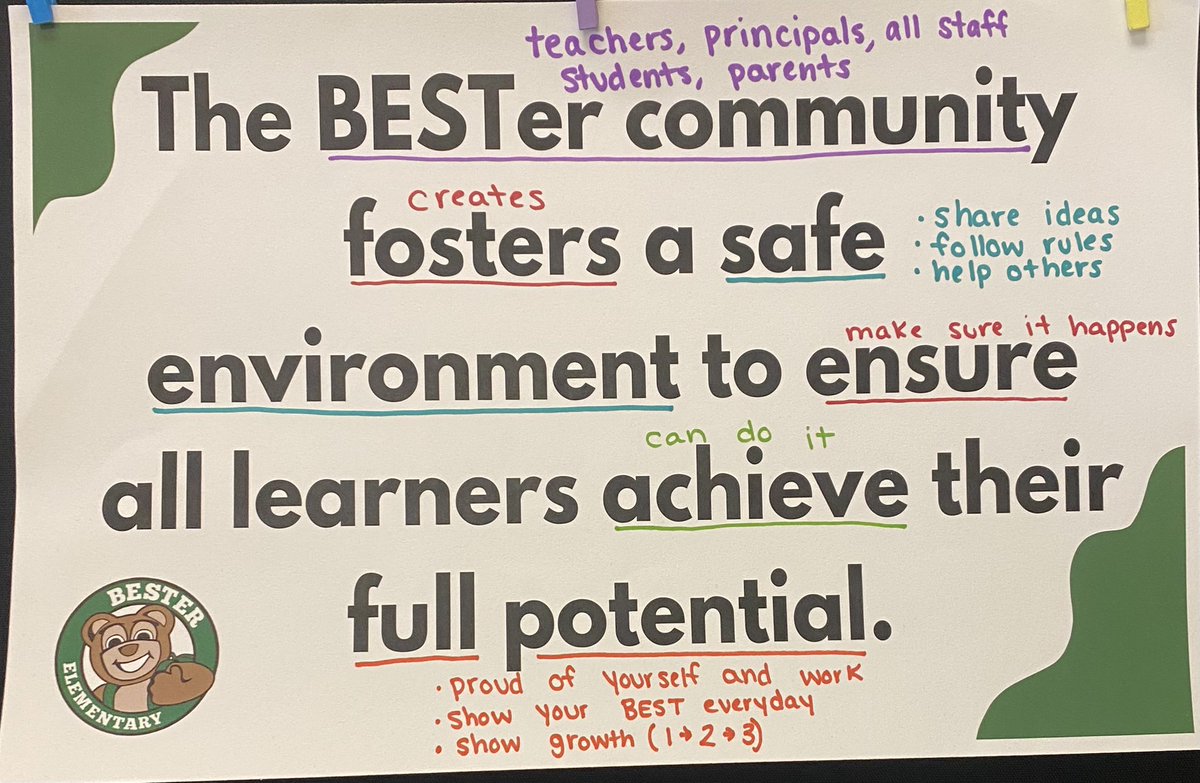 teachers, principals, all staff
students, parents
The BESTer community
creates
fosters a safe
• share ideas
• follow rules
• help others
make sure it happens
environment to ensure
can do it
all learners achieve their
full potential.
• proud of yourself and work
• show your BEST everyday
• show growth (1→2→3)
BESTER
ELEMENTARY